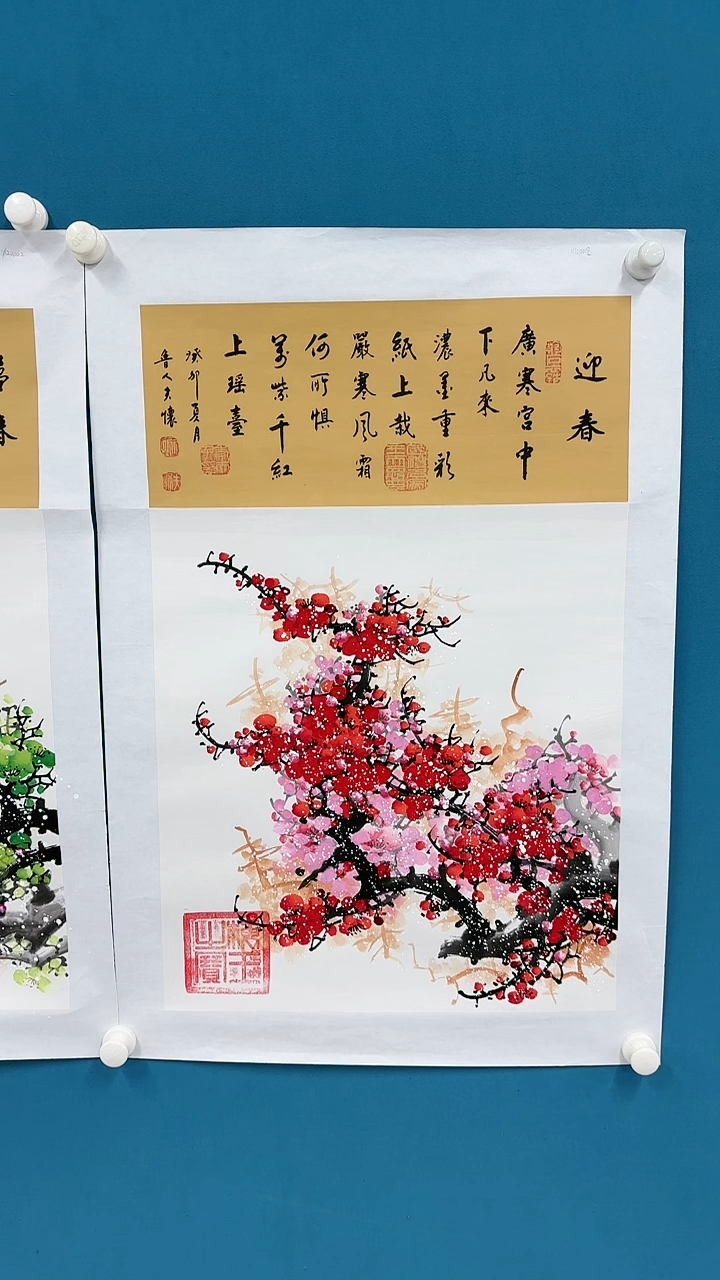 迎春
廣寒宮中
下凡來
濃墨重彩
紙上栽
嚴寒風霜
何所懼
萬紫千紅
上瑶臺
癸卯夏月
魯人天懷
春
之寶